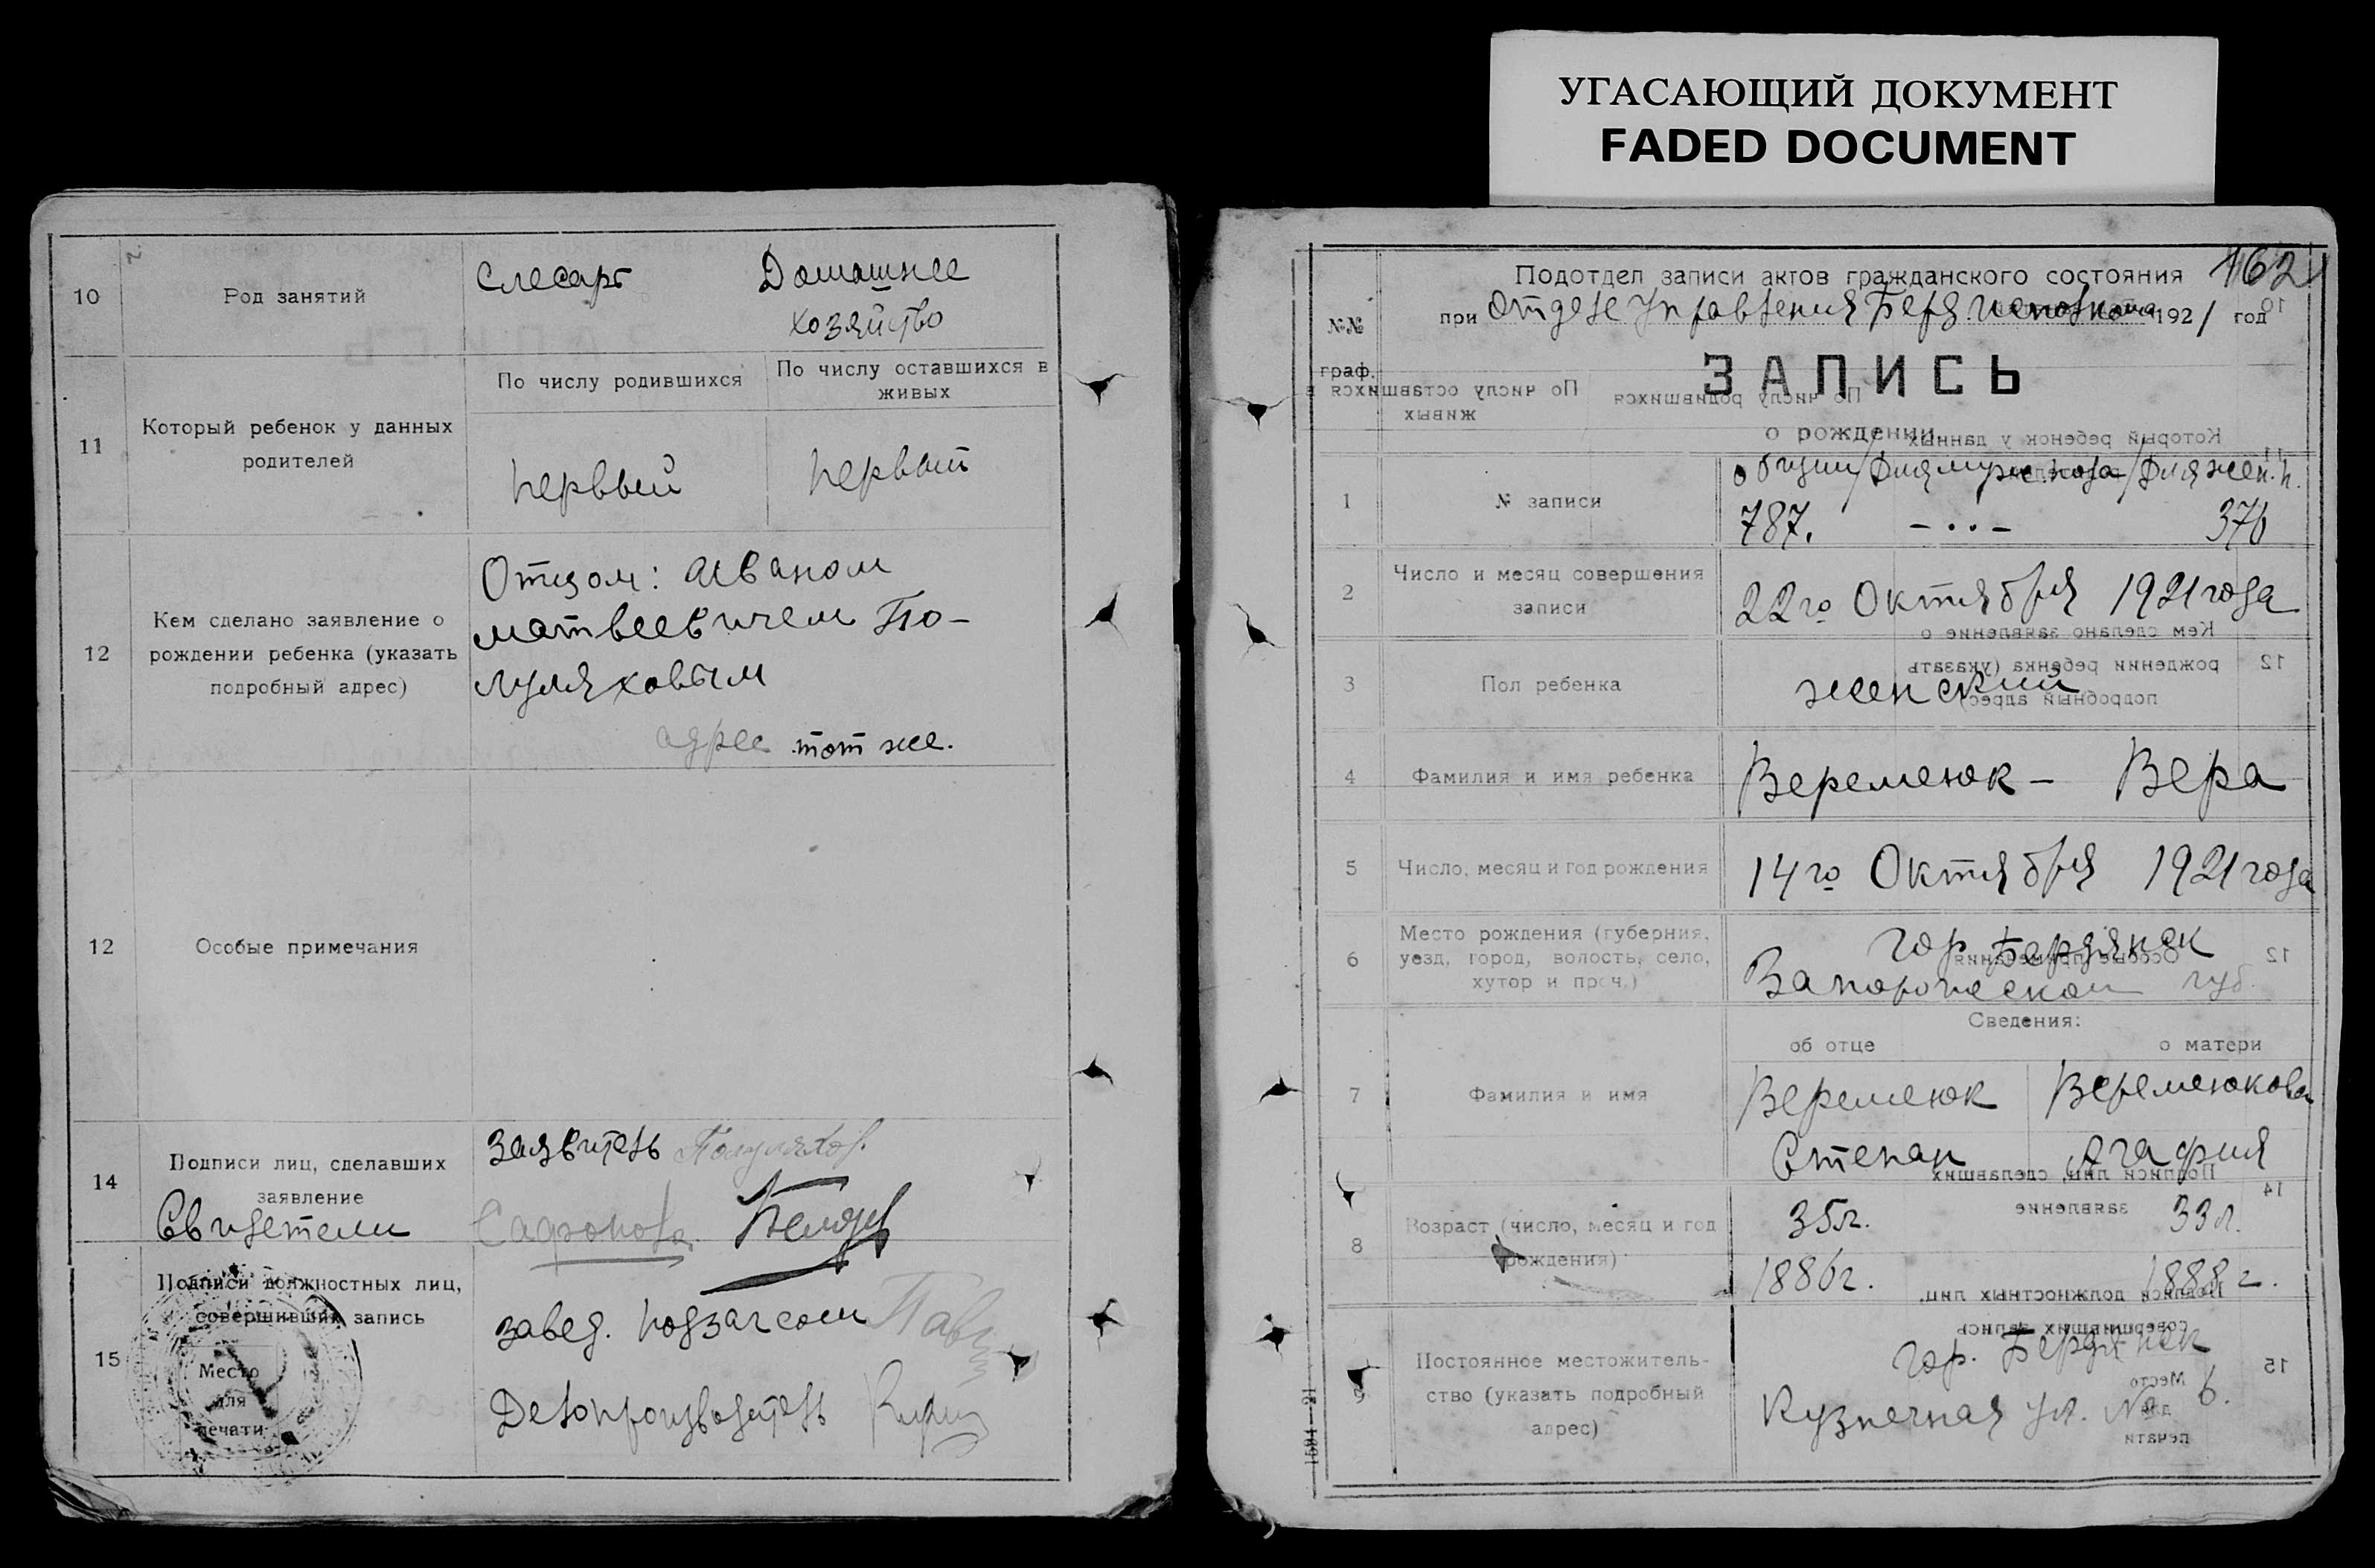 УГАСАЮЩИЙ ДОКУМЕНТ
FADED DOCUMENT
10
Род занятий
Слесарь
Домашнее
хозяйство
11
Который ребенок у данных
родителей
По числу родившихся
По числу оставшихся в
живых
первый
первый
12
Кем сделано заявление о
рождении ребенка (указать
подробный адрес)
Отцом: Иваном
Матвеевичем По-
луляховым
адрес тот же.
12
Особые примечания
14
Подписи лиц, сделавших
заявление
Свидетели
Заявитель Полуляхов.
Сафонова
15
Подписи должностных лиц,
совершивших запись
Место
для
печати
завед. подзагсом
Делопроизводитель
162
Подотдел записи актов гражданского состояния
№№
граф.
при Отделе Управления 1921 год
ЗАПИСЬ
о рождении
1
№ записи
общий/для муж. пола/для жен. п.
787. — . . — 376
2
Число и месяц совершения
записи
22го Октября 1921 года
3
Пол ребенка
женский
4
Фамилия и имя ребенка
Веременюк — Вера
5
Число, месяц и год рождения
14го Октября 1921 года
6
Место рождения (губерния,
уезд, город, волость, село,
хутор и проч.)
гор. Бердянск
Запорожской губ.
Сведения:
об отце
о матери
7
Фамилия и имя
Веремеюк
Веремеюкова
Степан
Агафия
8
Возраст (число, месяц и год
рождения)
35л.
33л.
1886г.
1888г.
9
Постоянное местожитель-
ство (указать подробный
адрес)
гор. Бердянск
Кузнечная ул. № 6.
1594—21